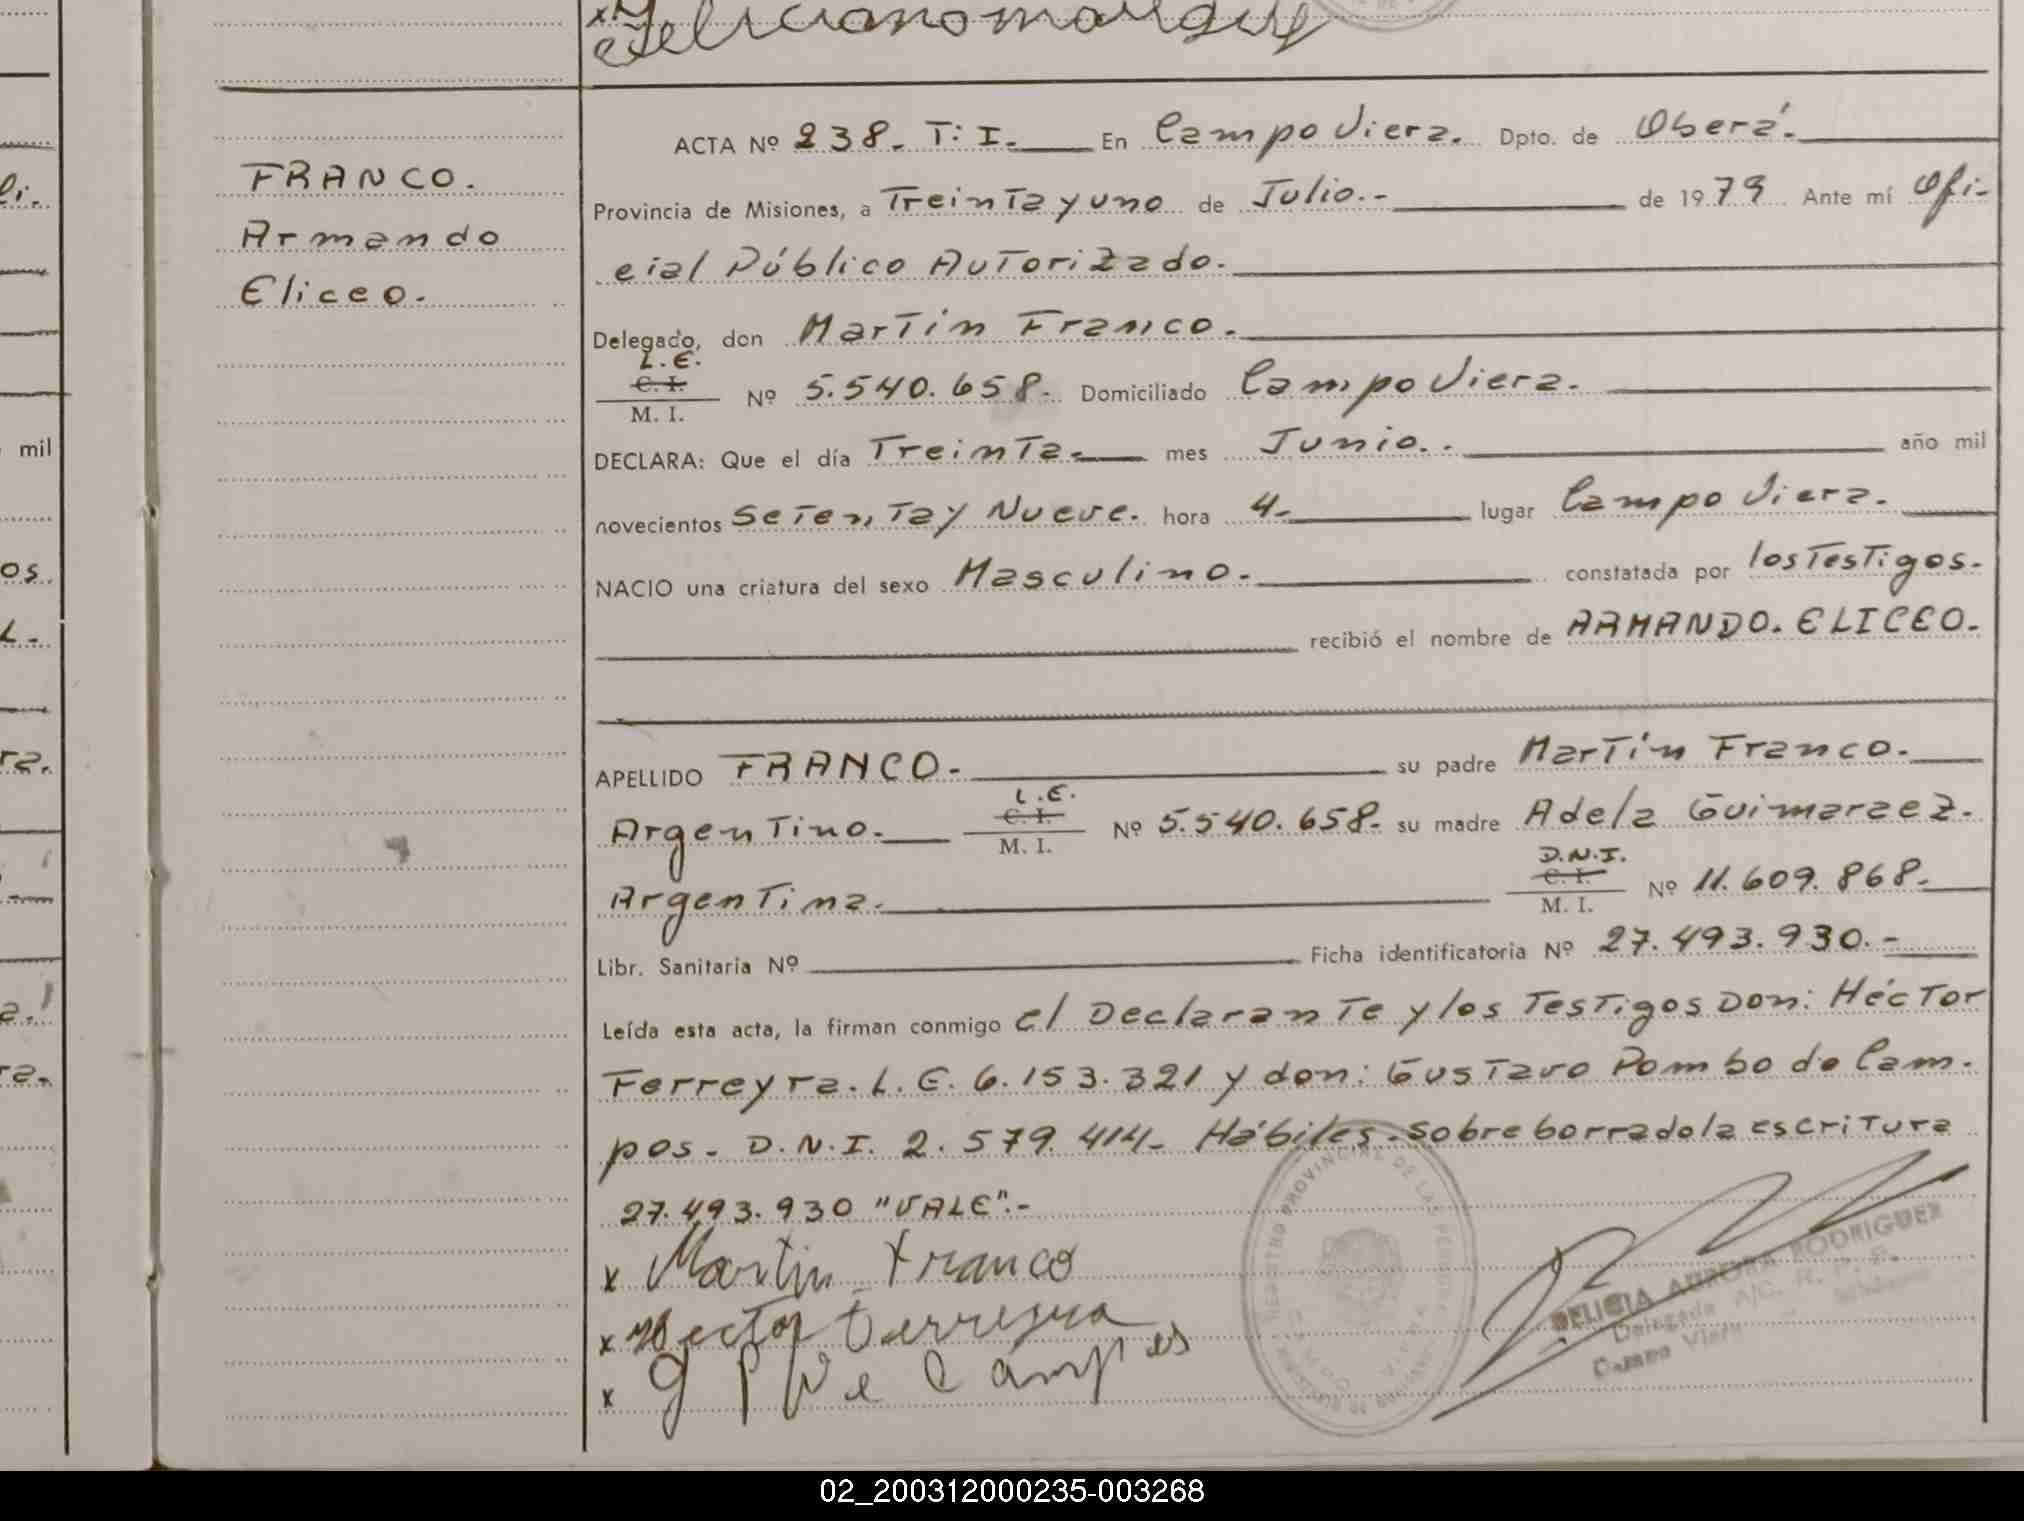 Feliciano
FRANCO.
Armando
Eliceo.
ACTA Nº 238. T: I. En Campo Viera. Dpto. de Oberá.
Provincia de Misiones, a Treinta y uno de Julio.- de 1979 Ante mí Ofi-
cial Público Autorizado.
Delegado, don Martín Franco.
L.E.
C. I.
M. I.
Nº 5.540.658. Domiciliado Campo Viera.
DECLARA: Que el día Treinta. mes Junio.. año mil
novecientos Setenta y Nueve. hora 4. lugar Campo Viera.
NACIO una criatura del sexo Masculino. constatada por los Testigos.
recibió el nombre de ARMANDO. ELICEO.
APELLIDO FRANCO. su padre Martín Franco.
L.E.
Argentino. C. I. Nº 5.540.658. su madre Adela Guimaraez.
M. I.
D.N.I.
Argentina. C. I. Nº 11.609.868.
M. I.
Libr. Sanitaria Nº Ficha identificatoria Nº 27.493.930.-
Leída esta acta, la firman conmigo el Declarante y los Testigos Don: Héctor
Ferreyra. L.E. 6.153.321 y don: Gustavo Pombo de Cam.
pos. D.N.I. 2.579.414. Hábiles. Sobre borrado la escritura
27.493.930 "VALE".-
x Martin Franco
x Hector Ferreyra
x G P de Campos
REGISTRO PROVINCIAL DE LAS PERSONAS
DELICIA AURORA RODRIGUEZ
Delegada A/C. R. P. P.
Campo Viera
mil
os.
ra.
02_200312000235-003268